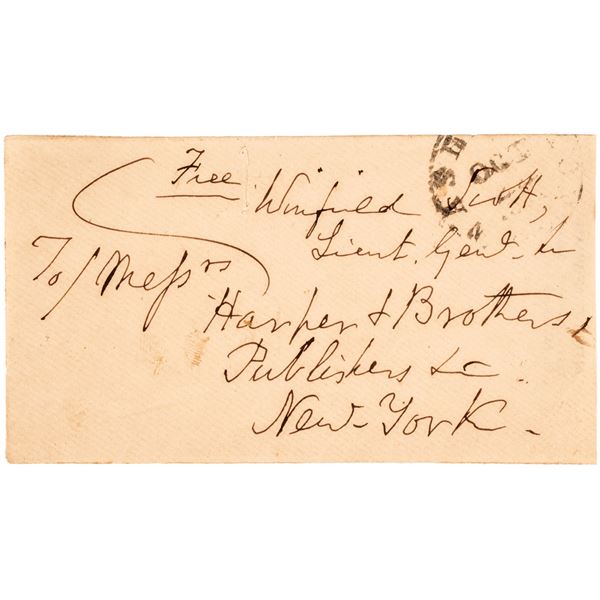 Free
Winfield Scott,
Lieut. Genl.
To / Messrs
Harper & Brothers,
Publishers &c.
New-York.
OCT
4